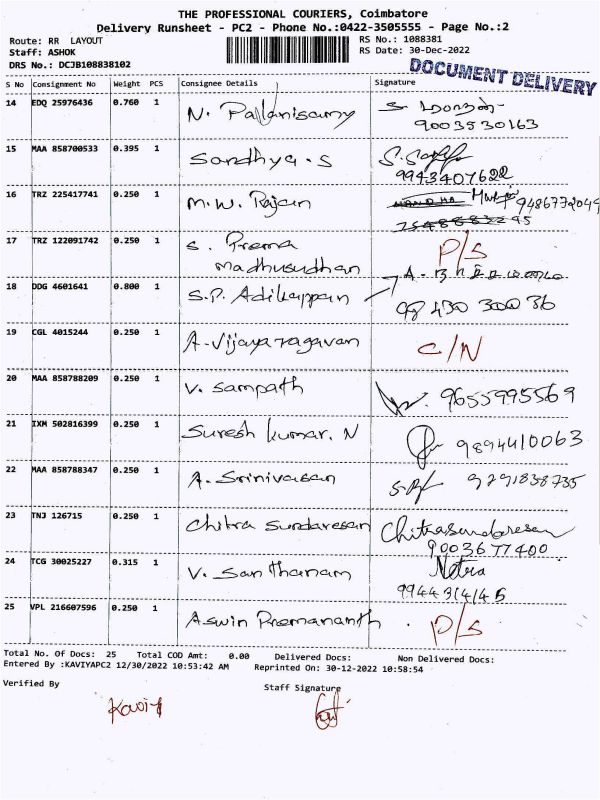 THE PROFESSIONAL COURIERS, Coimbatore
Delivery Runsheet - PC2 - Phone No.:0422-3505555 - Page No.:2
Route: RR LAYOUT
Staff: ASHOK
DRS No.: DCJB108838102
RS No.: 1088381
RS Date: 30-Dec-2022
DOCUMENT DELIVERY
S No Consignment No Weight PCS Consignee Details Signature
14 EDQ 25976436 0.760 1 N. Pallanisamy
9003530163
15 MAA 858700533 0.395 1 Sandhya.S
9943407622
16 TRZ 225417741 0.250 1 M.W. Rajan 9486772049
17 TRZ 122091742 0.250 1 S. Prema P/S
Madhusudhan
18 DDG 4601641 0.800 1 S.P. Adikappan
98 430 300 36
19 CGL 4015244 0.250 1 A. Vijaya ragavan C/N
20 MAA 858788209 0.250 1 V. Sampath 9655995569
21 IXM 502816399 0.250 1 Suresh kumar. N 9894410063
22 MAA 858788347 0.250 1 A. Srinivasan 9791838735
23 TNJ 126715 0.250 1 Chitra Sundaresan Chitrasundaresan
9003677400
24 TCG 30025227 0.315 1 V. Santhanam Netra
9944314145
25 VPL 216607596 0.250 1 Aswin Premananth . P/S
Total No. Of Docs: 25 Total COD Amt: 0.00 Delivered Docs: Non Delivered Docs:
Entered By :KAVIYAPC2 12/30/2022 10:53:42 AM Reprinted On: 30-12-2022 10:58:54
Verified By Staff Signature
Kaviya